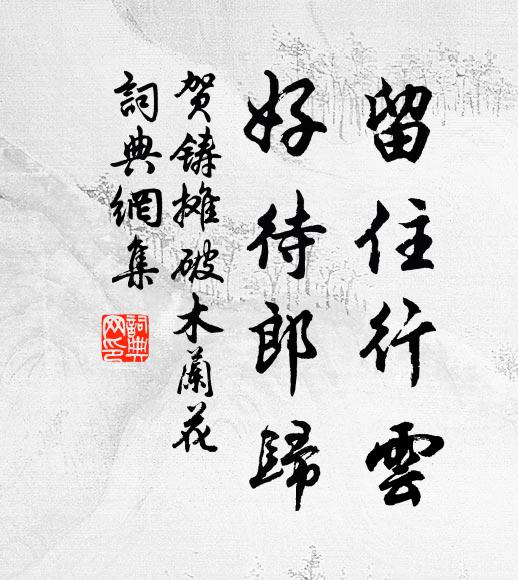 留住行雲
好待郎歸
贺鑄摊破木蘭花
詞典網集
詞典网印